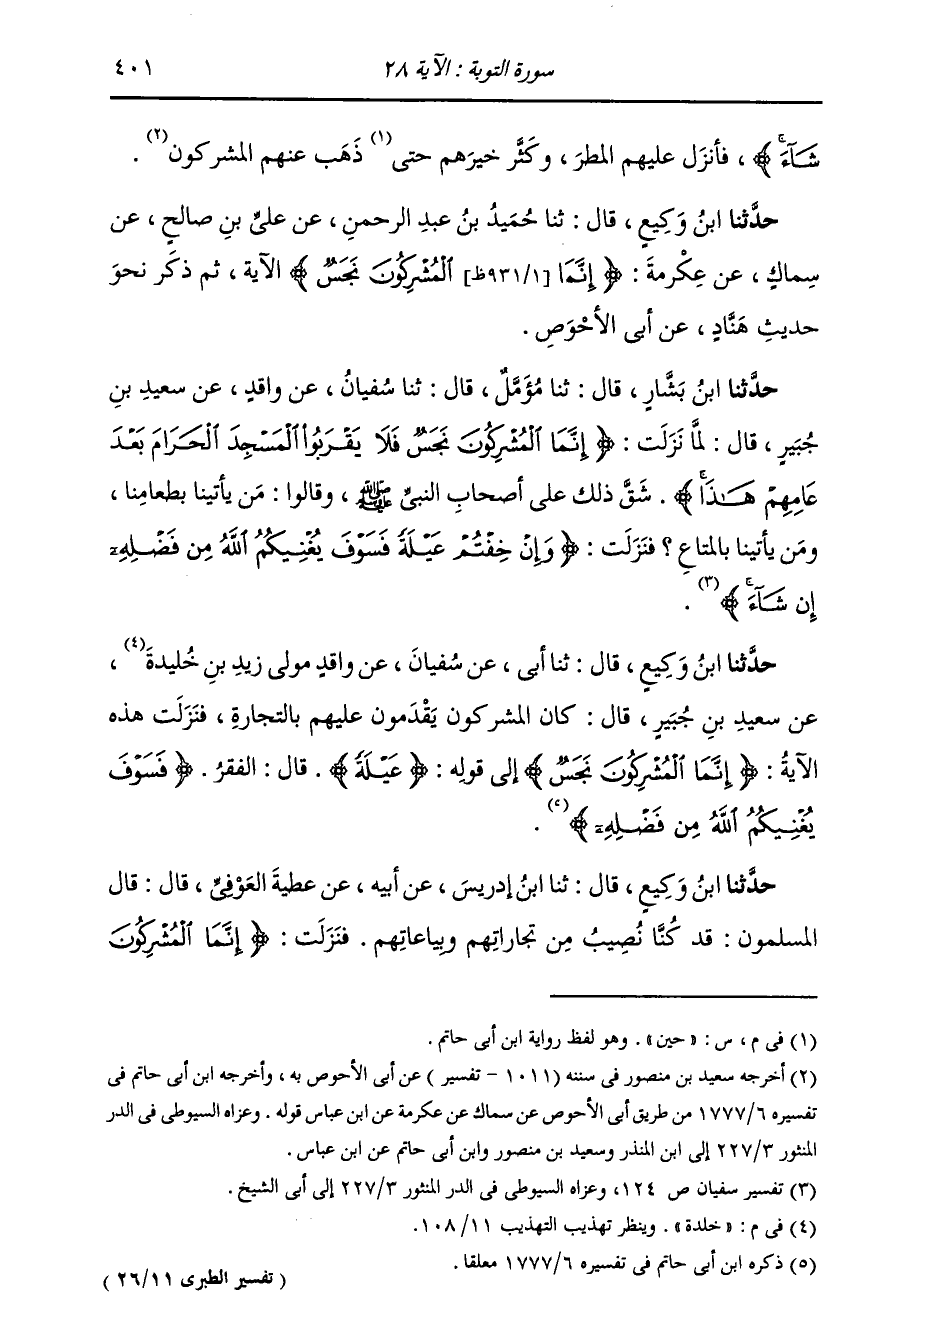 سورة التوبة : الآية ٢٨ ٤٠١
شَآءَۚ ﴾ ، فأنزَل عليهم المطرَ ، وكَثَّر خيرَهم حتى(١) ذَهَب عنهم المشركون(٢) .
حدَّثنا ابنُ وَكيعٍ ، قال : ثنا حُمَيدُ بنُ عبدِ الرحمنِ ، عن علىِّ بنِ صالحٍ ، عن
سِماكٍ ، عن عِكْرمةَ : ﴿ إِنَّمَا [٩٣١/١ظ] ٱلْمُشْرِكُونَ نَجَسٌ ﴾ الآية ، ثم ذكَر نحوَ
حديثِ هَنَّادٍ ، عن أبى الأَحْوَصِ .
حدَّثنا ابنُ بَشَّارٍ ، قال : ثنا مُؤَمَّلٌ ، قال : ثنا سُفيانُ ، عن واقدٍ ، عن سعيدِ بنِ
جُبَيرٍ ، قال : لمَّا نَزَلَت : ﴿ إِنَّمَا ٱلْمُشْرِكُونَ نَجَسٌ فَلَا يَقْرَبُوا۟ ٱلْمَسْجِدَ ٱلْحَرَامَ بَعْدَ
عَامِهِمْ هَـٰذَاۚ ﴾ . شَقَّ ذلك على أصحابِ النبىِّ ﷺ ، وقالوا : مَن يأتينا بطعامِنا ،
ومَن يأتينا بالمتاعِ ؟ فنَزَلَت : ﴿ وَإِنْ خِفْتُمْ عَيْلَةً فَسَوْفَ يُغْنِيكُمُ ٱللَّهُ مِن فَضْلِهِۦٓ
إِن شَآءَۚ ﴾(٣) .
حدَّثنا ابنُ وَكيعٍ ، قال : ثنا أبى ، عن سُفيانَ ، عن واقدٍ مولى زيدِ بنِ خُليدةَ(٤) ،
عن سعيدِ بنِ جُبَيرٍ ، قال : كان المشركون يَقْدَمون عليهم بالتجارةِ ، فنَزَلَت هذه
الآيةُ : ﴿ إِنَّمَا ٱلْمُشْرِكُونَ نَجَسٌ ﴾ إلى قولِه : ﴿ عَيْلَةً ﴾ . قال : الفقرُ . ﴿ فَسَوْفَ
يُغْنِيكُمُ ٱللَّهُ مِن فَضْلِهِۦٓ ﴾(٥) .
حدَّثنا ابنُ وَكيعٍ ، قال : ثنا ابنُ إدريسَ ، عن أبيه ، عن عطيةَ العَوْفِىِّ ، قال : قال
المسلمون : قد كُنَّا نُصِيبُ مِن تجاراتِهم وبِياعاتِهم . فنَزَلَت : ﴿ إِنَّمَا ٱلْمُشْرِكُونَ
(١) فى م ، س : « حين » . وهو لفظ رواية ابن أبى حاتم .
(٢) أخرجه سعيد بن منصور فى سننه (١٠١١ - تفسير ) عن أبى الأحوص به ، وأخرجه ابن أبى حاتم فى
تفسيره ١٧٧٧/٦ من طريق أبى الأحوص عن سماك عن عكرمة عن ابن عباس قوله . وعزاه السيوطى فى الدر
المنثور ٢٢٧/٣ إلى ابن المنذر وسعيد بن منصور وابن أبى حاتم عن ابن عباس .
(٣) تفسير سفيان ص ١٢٤، وعزاه السيوطى فى الدر المنثور ٢٢٧/٣ إلى أبى الشيخ .
(٤) فى م : « خلدة » . وينظر تهذيب التهذيب ١١/ ١٠٨.
(٥) ذكره ابن أبى حاتم فى تفسيره ١٧٧٧/٦ معلقا .
( تفسير الطبرى ٢٦/١١ )